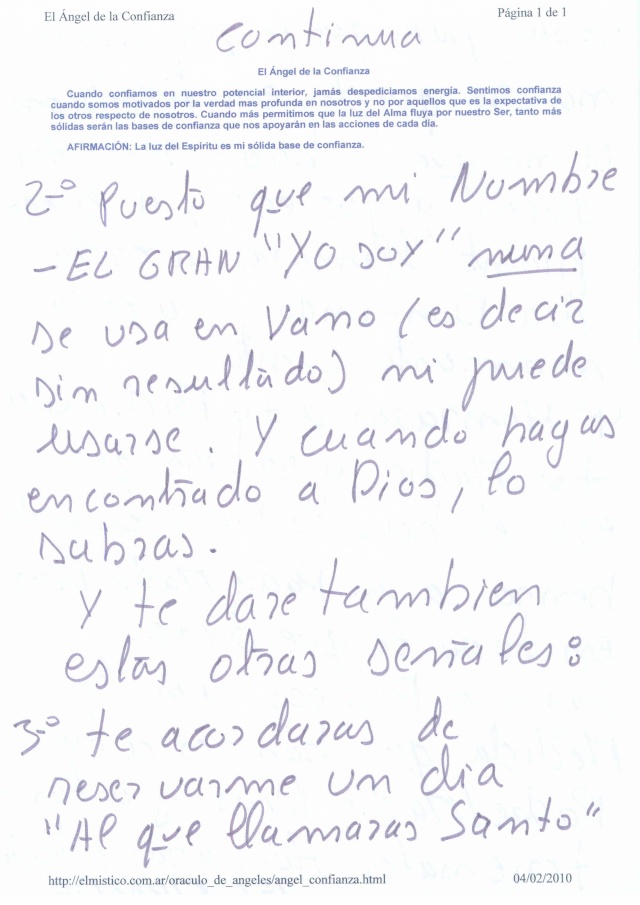 El Ángel de la Confianza
Página 1 de 1
Continua
El Ángel de la Confianza
Cuando confiamos en nuestro potencial interior, jamás despediciamos energía. Sentimos confianza
cuando somos motivados por la verdad mas profunda en nosotros y no por aquellos que es la expectativa de
los otros respecto de nosotros. Cuando más permitimos que la luz del Alma fluya por nuestro Ser, tanto más
sólidas serán las bases de confianza que nos apoyarán en las acciones de cada día.
AFIRMACIÓN: La luz del Espíritu es mi sólida base de confianza.
2-º Puesto que mi Nombre
- EL GRAN "YO SOY" nunca
se usa en Vano (es decir
sin resultado) ni puede
usarse. Y cuando hayas
encontrado a Dios, lo
sabras.
Y te dare tambien
estas otras señales:
3-º te acordaras de
reservarme un dia
"Al que llamaras Santo"
http://elmistico.com.ar/oraculo_de_angeles/angel_confianza.html
04/02/2010